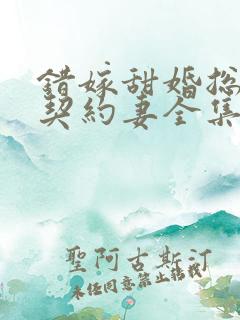 錯嫁甜婚总
契約妻全集
聖阿古斯汀
未经同意禁止转载